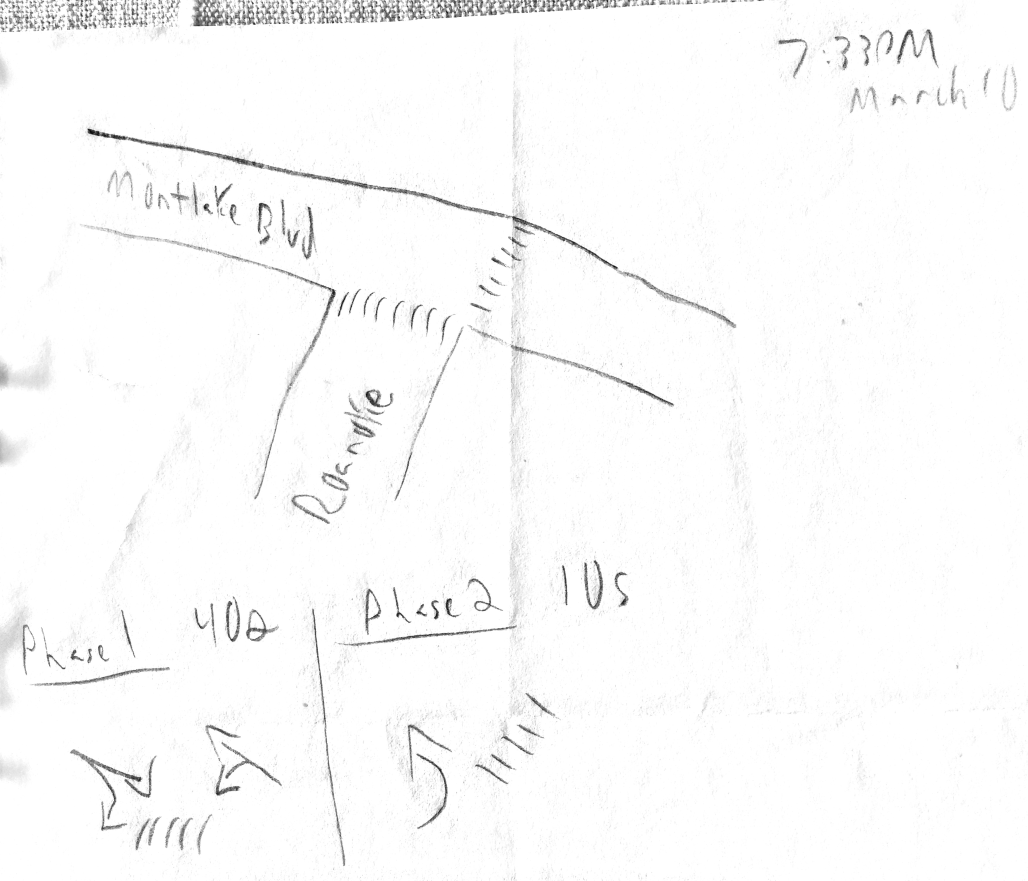 7:33PM
March 10
Montlake Blvd
Roanoke
Phase 1 40s
Phase 2 10s